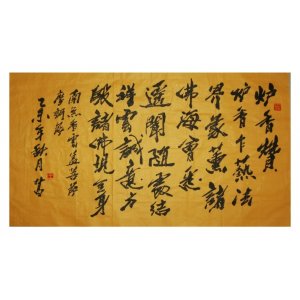 炉香贊
炉香乍爇法
界蒙薰諸
佛海會悉
遥聞隨處結
祥雲誠意方
殷諸佛現全身
南无香雲蓋菩薩
摩訶薩
年秋月